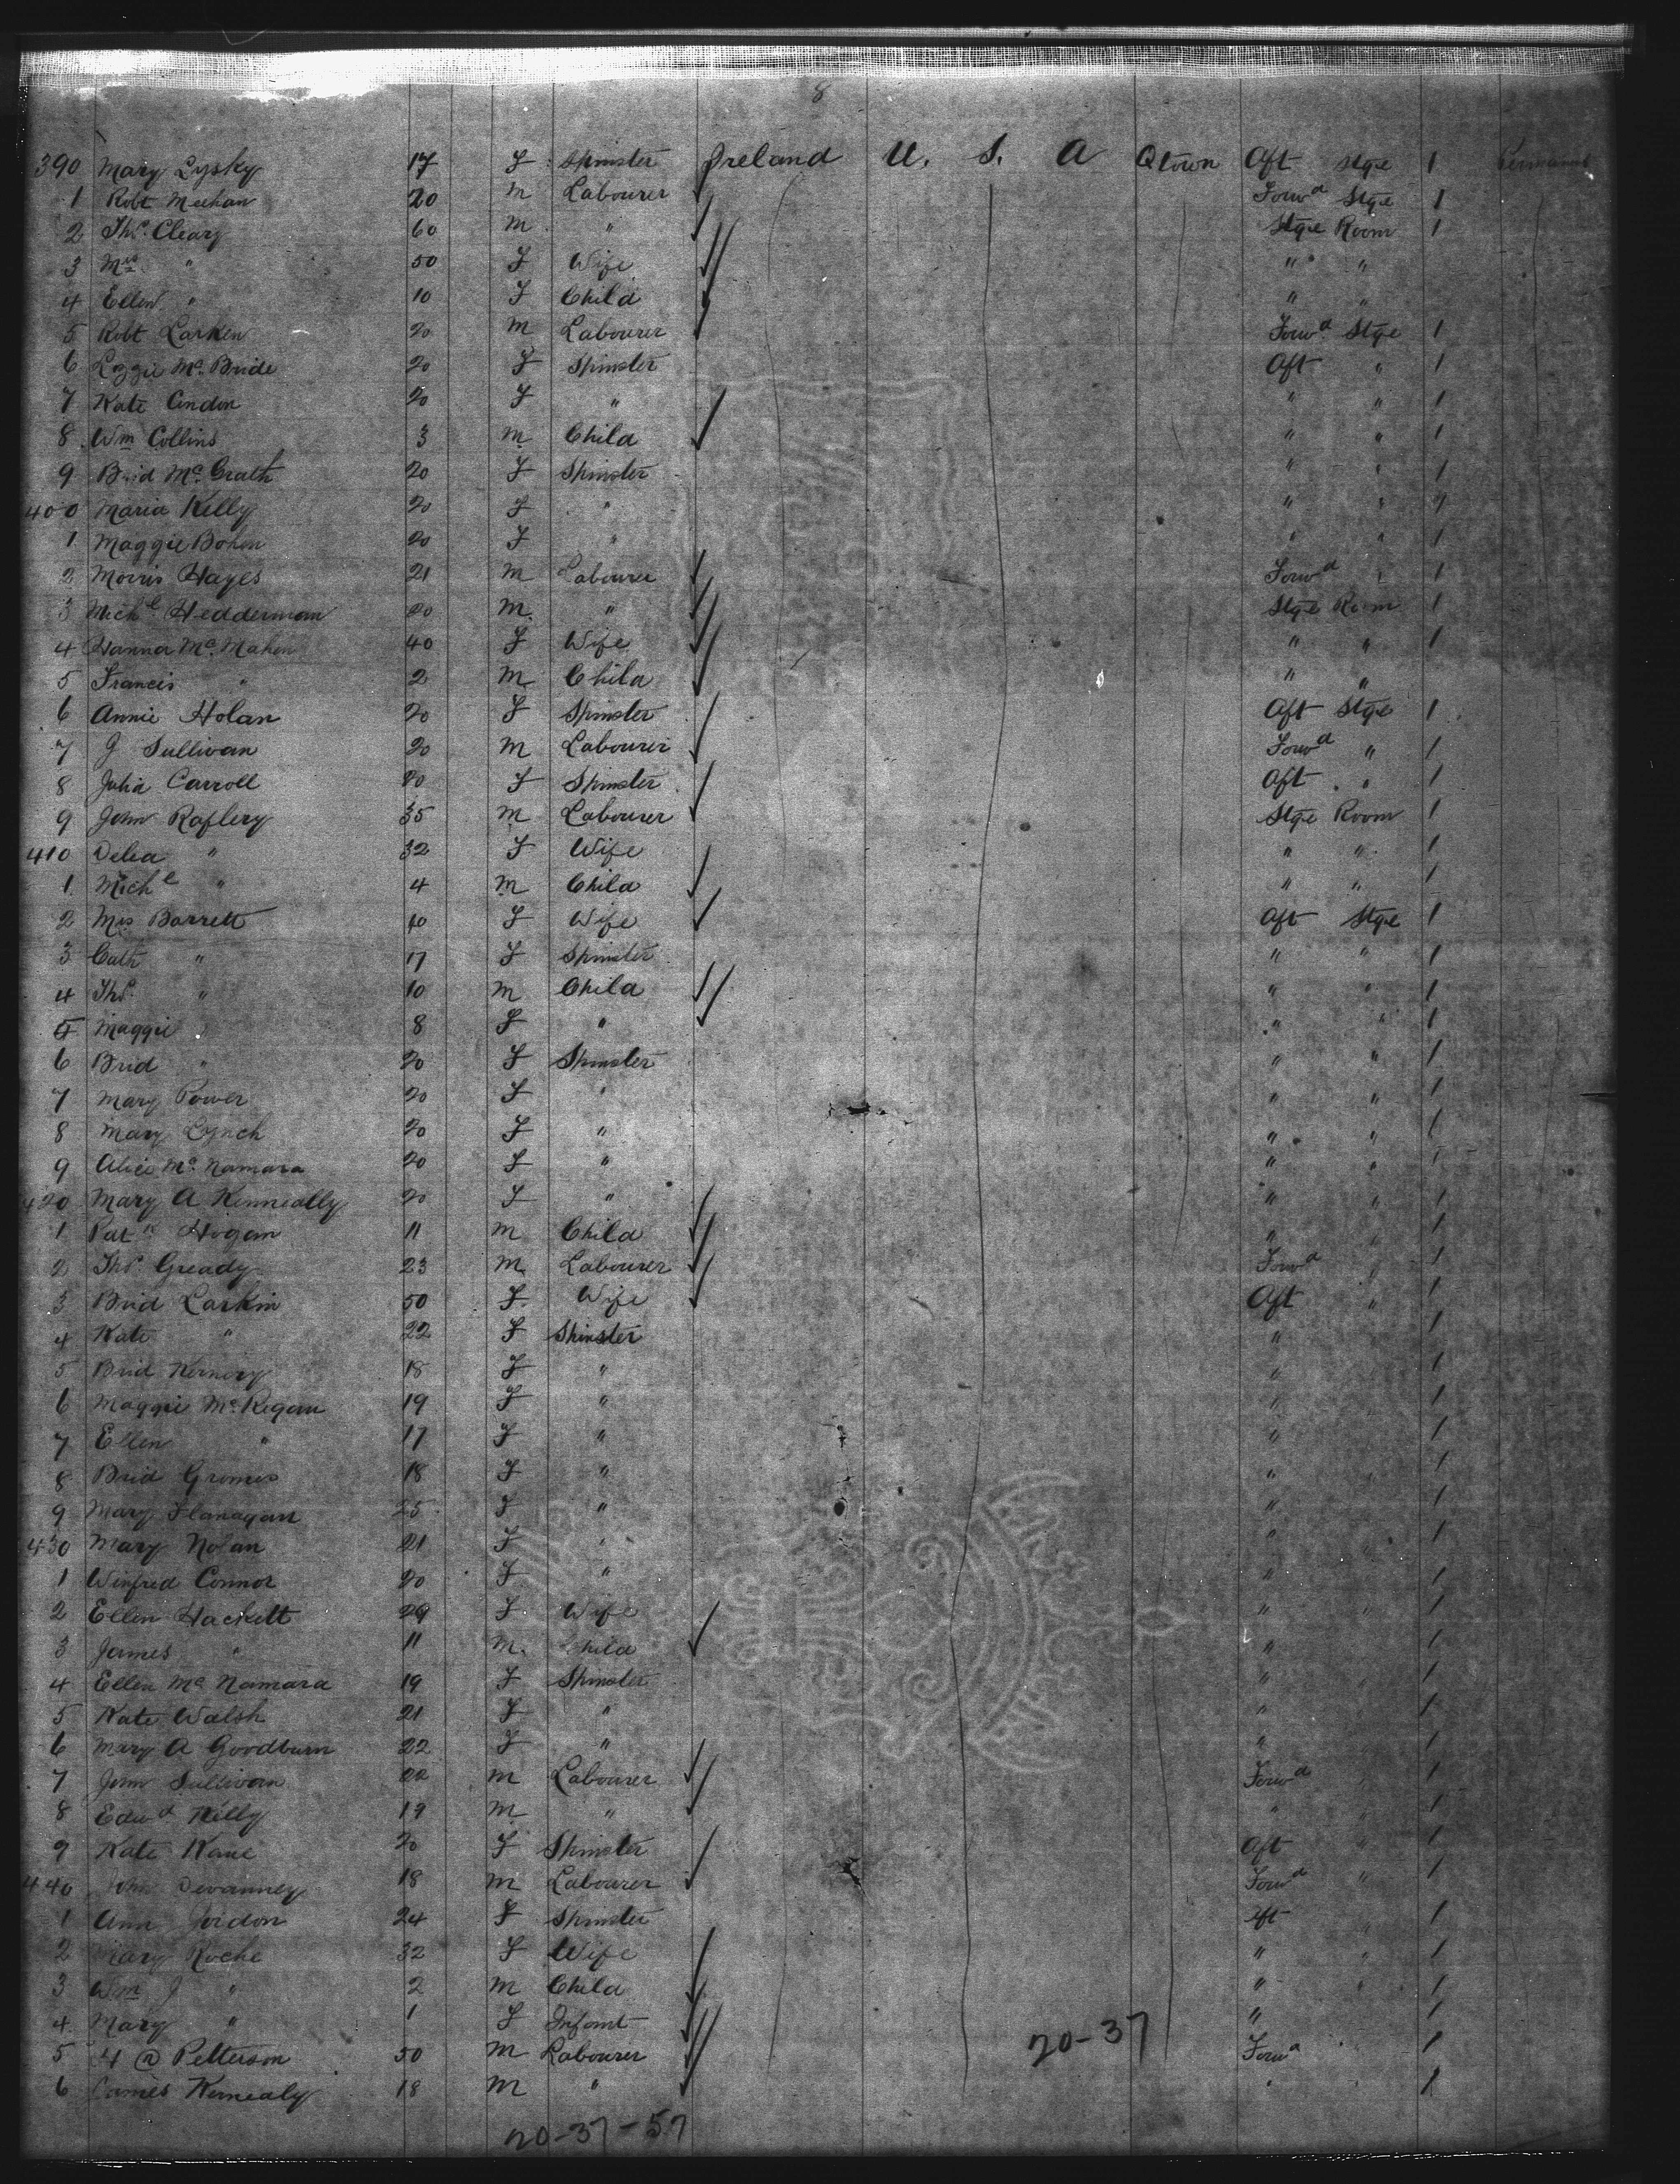 8
390 Mary Lysky 17 F Spinster Ireland U. S. A Qtown Aft Stge 1
1 Robt Meehan 20 M Labourer Forwd Stge 1
2 Thos. Cleary 60 M " Stge Room 1
3 Mrs. " 50 F Wife " "
4 Ellen " 10 F Child " "
5 Robt Larken 20 M Labourer Forwd Stge 1
6 Lizzie Mc. Bride 20 F Spinster Aft " 1
7 Kate Condon 20 F " " " 1
8 Wm Collins 3 M Child " " 1
9 Brid Mc. Grath 20 F Spinster " " 1
400 Maria Kelly 20 F " " " 1
1 Maggie Bohen 20 F " " " 1
2 Morris Hayes 21 M Labourer Forwd " 1
3 Michl Hedderman 20 M " Stge Room 1
4 Hanna Mc. Mahon 40 F Wife " " 1
5 Francis " 2 M Child " "
6 Annie Holan 20 F Spinster Aft Stge 1
7 J Sullivan 20 M Labourer Forwd " 1
8 Julia Carroll 20 F Spinster Aft " 1
9 John Raftery 35 M Labourer Stge Room 1
410 Delea " 32 F Wife " " 1
1 Michl " 4 M Child " " 1
2 Mrs Barrett 40 F Wife Aft Stge 1
3 Cath " 17 F Spinster " " 1
4 Thos. " 10 M Child " " 1
5 Maggie " 8 F " " " 1
6 Brid " 20 F Spinster " " 1
7 Mary Power 20 F " " " 1
8 Mary Lynch 20 F " " " 1
9 Alice Mc. Namara 20 F " " " 1
420 Mary A Kenneally 20 F " " " 1
1 Patk Hogan 11 M Child " " 1
2 Thos Gready 23 M Labourer Forwd " 1
3 Brid Larkin 50 F Wife Aft " 1
4 Kate " 22 F Spinster " 1
5 Brid 18 F " " 1
6 Maggie Mc. Regan 19 F " " 1
7 Ellen " 17 F " " 1
8 Brid 18 F " " 1
9 Mary Flanagan 25 F " " 1
430 Mary Nolan 21 F " " 1
1 Winfred Connor 20 F " " 1
2 Ellen Hackett 29 F Wife " " 1
3 James " 11 M. Child " 1
4 Ellen Mc Namara 19 F Spinster " 1
5 Kate Walsh 21 F " " 1
6 Mary A Goodburn 22 F " " 1
7 John Sullivan 22 M Labourer Forwd 1
8 Edwd. Kelly 19 M " " 1
9 Kate Kane 20 F Spinster Aft 1
440 John Devanney 18 M Labourer Forwd " 1
1 Ann Jordon 24 F Spinster Aft 1
2 Mary Roche 32 F Wife " 1
3 Wm J " 2 M Child " 1
4 Mary " 1 F Infant " 1
20-37
5 Petterson 50 M Labourer Forwd 1
6 James Kennealy 18 M " " 1
20-37-57